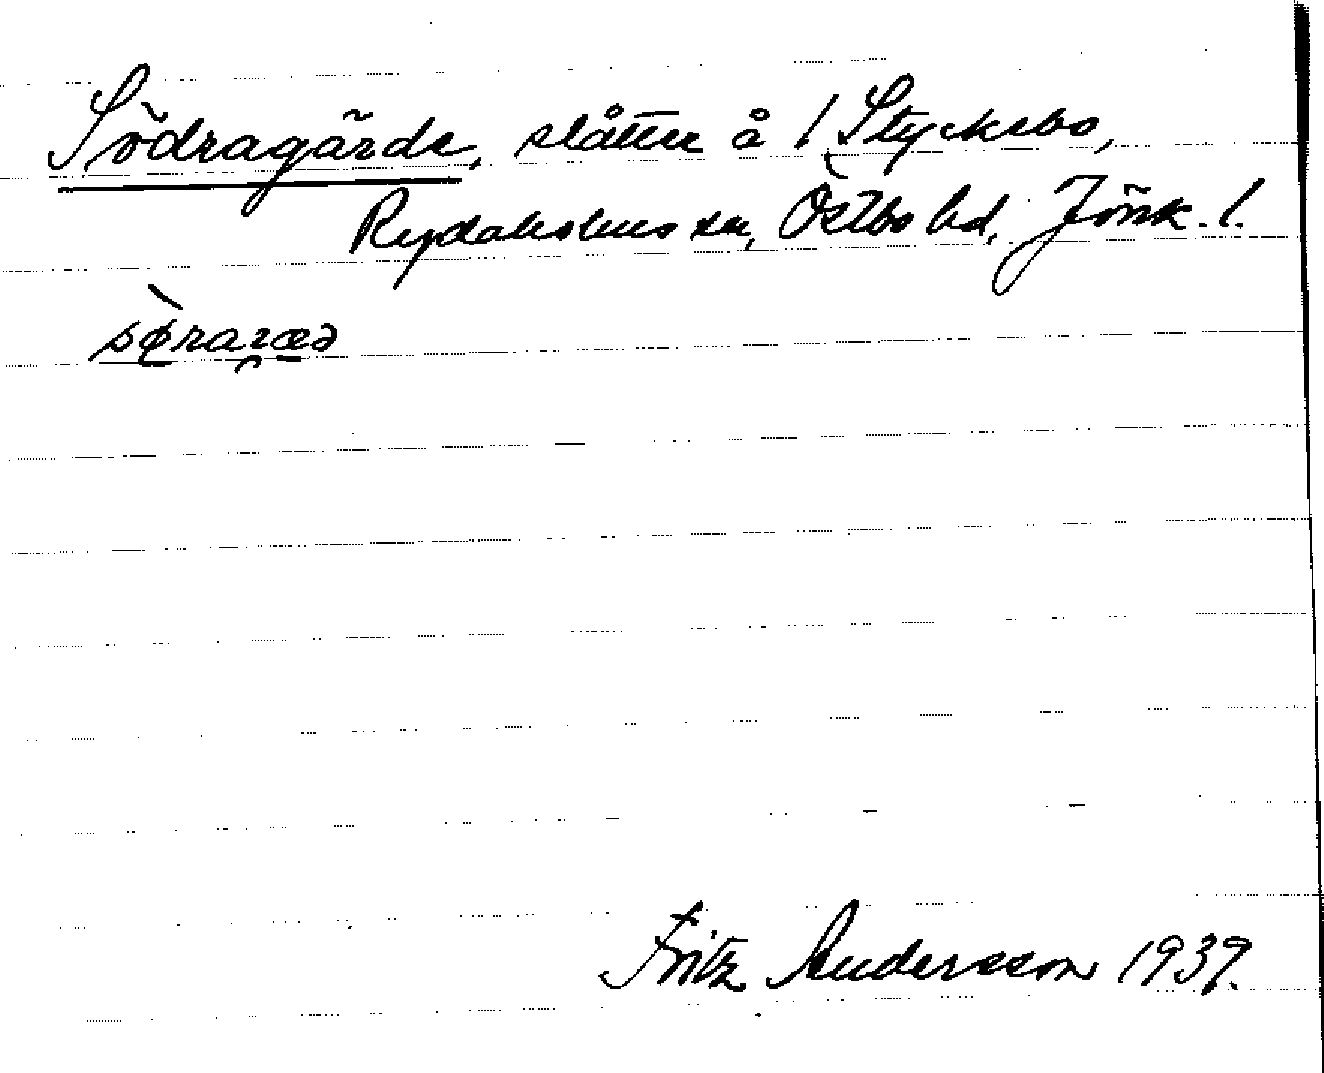 Södragärde, slåtter å 1 Styckebo,
Rydaholms sn, Östbo hd, Jönk. l.
sø̀raʀæə
Fritz Andersson 1939.